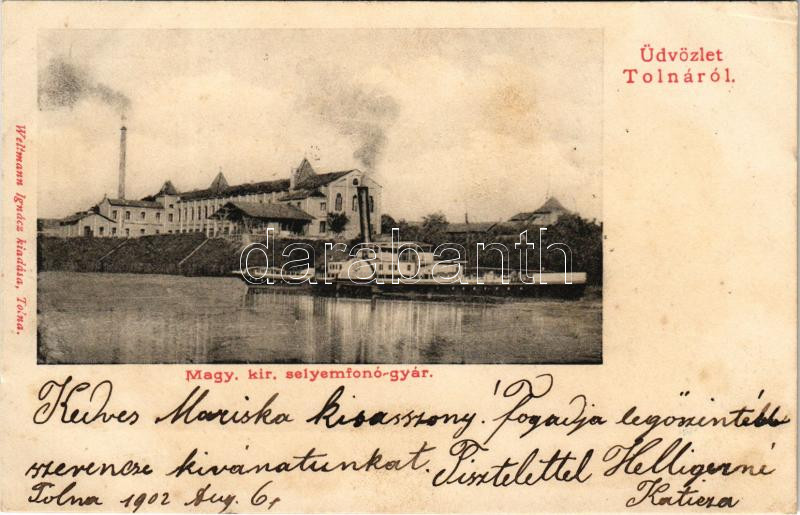 Üdvözlet
Tolnáról.
Weltmann Ignácz kiadása, Tolna.
darabanth
Magy. kir. selyemfonó-gyár.
Kedves Mariska kisasszony! Fogadja legőszintébb
szerencse kivánatunkat. Tisztelettel Helligerné
Tolna 1902 Aug. 6, Katicza